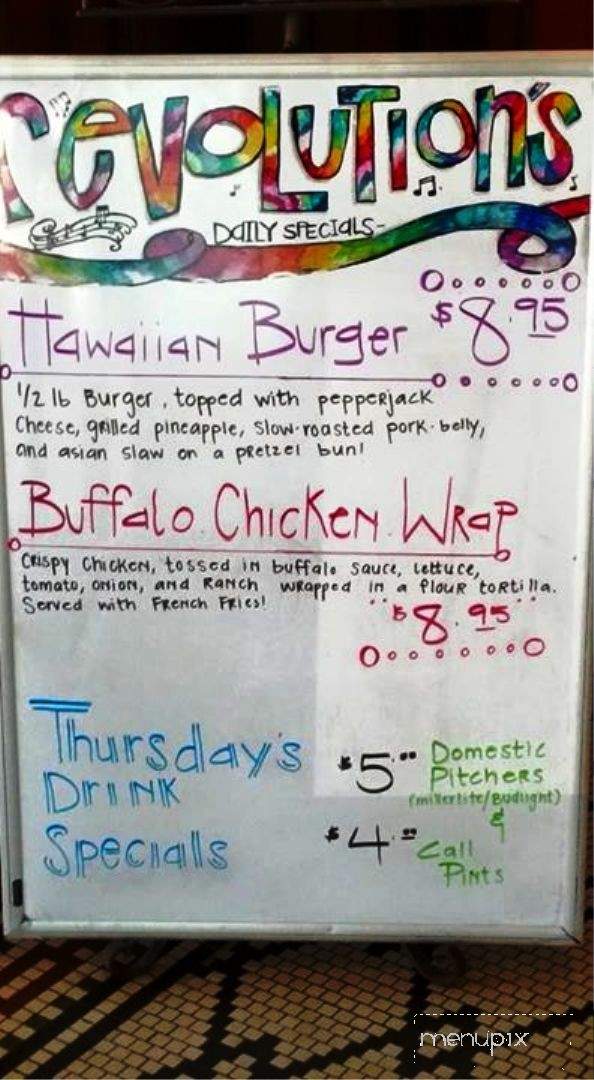 revolution's
DAILY SPECIALS-
Hawaiian Burger $8.95
1/2 lb Burger, topped with pepperjack
Cheese, grilled pineapple, slow-roasted pork-belly,
and asian slaw on a pretzel bun!
Buffalo Chicken Wrap
Crispy Chicken, tossed in buffalo sauce, lettuce,
tomato, onion, and Ranch wrapped in a flour tortilla.
Served with French Fries!
$8.95
Thursday's
Drink
Specials
$5.00 Domestic
Pitchers
(millerlite/Budlight)
&
$4.00 Call
Pints
menupix